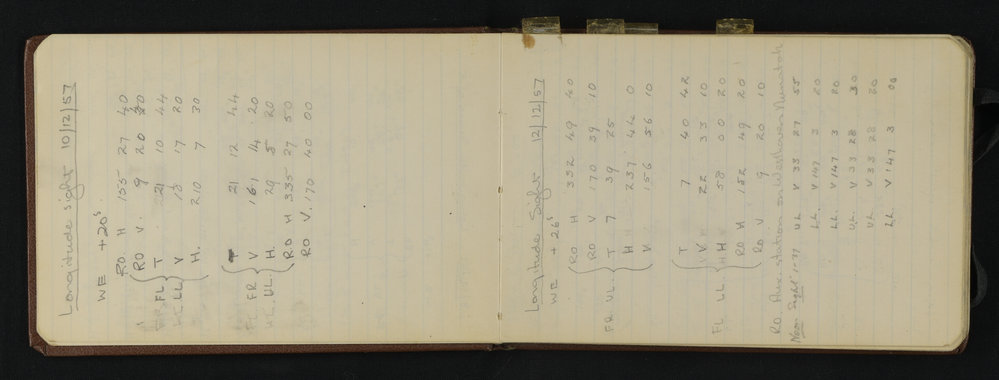 Longitude Sight 10/12/57
WE +20s
RO H 155 27 40
RO V. 9 20 20
FL T 21 10 44
LL V 18 17 20
H. 210 7 30
T 21 12 44
FR V 161 14 20
UL H. 29 5 20
RO H 335 27 50
RO V. 170 40 00
Longitude Sight 12/12/57
WE + 26s
RO H 332 49 40
RO V 170 39 10
FR UL T 7 39 25
H 237 44 0
V 156 56 10
T 7 40 42
V 22 33 10
FL LL H 58 00 20
RO H 152 49 20
RO V 9 20 10
RO. Aux. station on Westhaven Nunatak
UL V 33 27 55
LL. V 147 3 20
LL. V 147 3 20
UL. V 33 28 30
UL V 33 28 20
LL. V 147 3